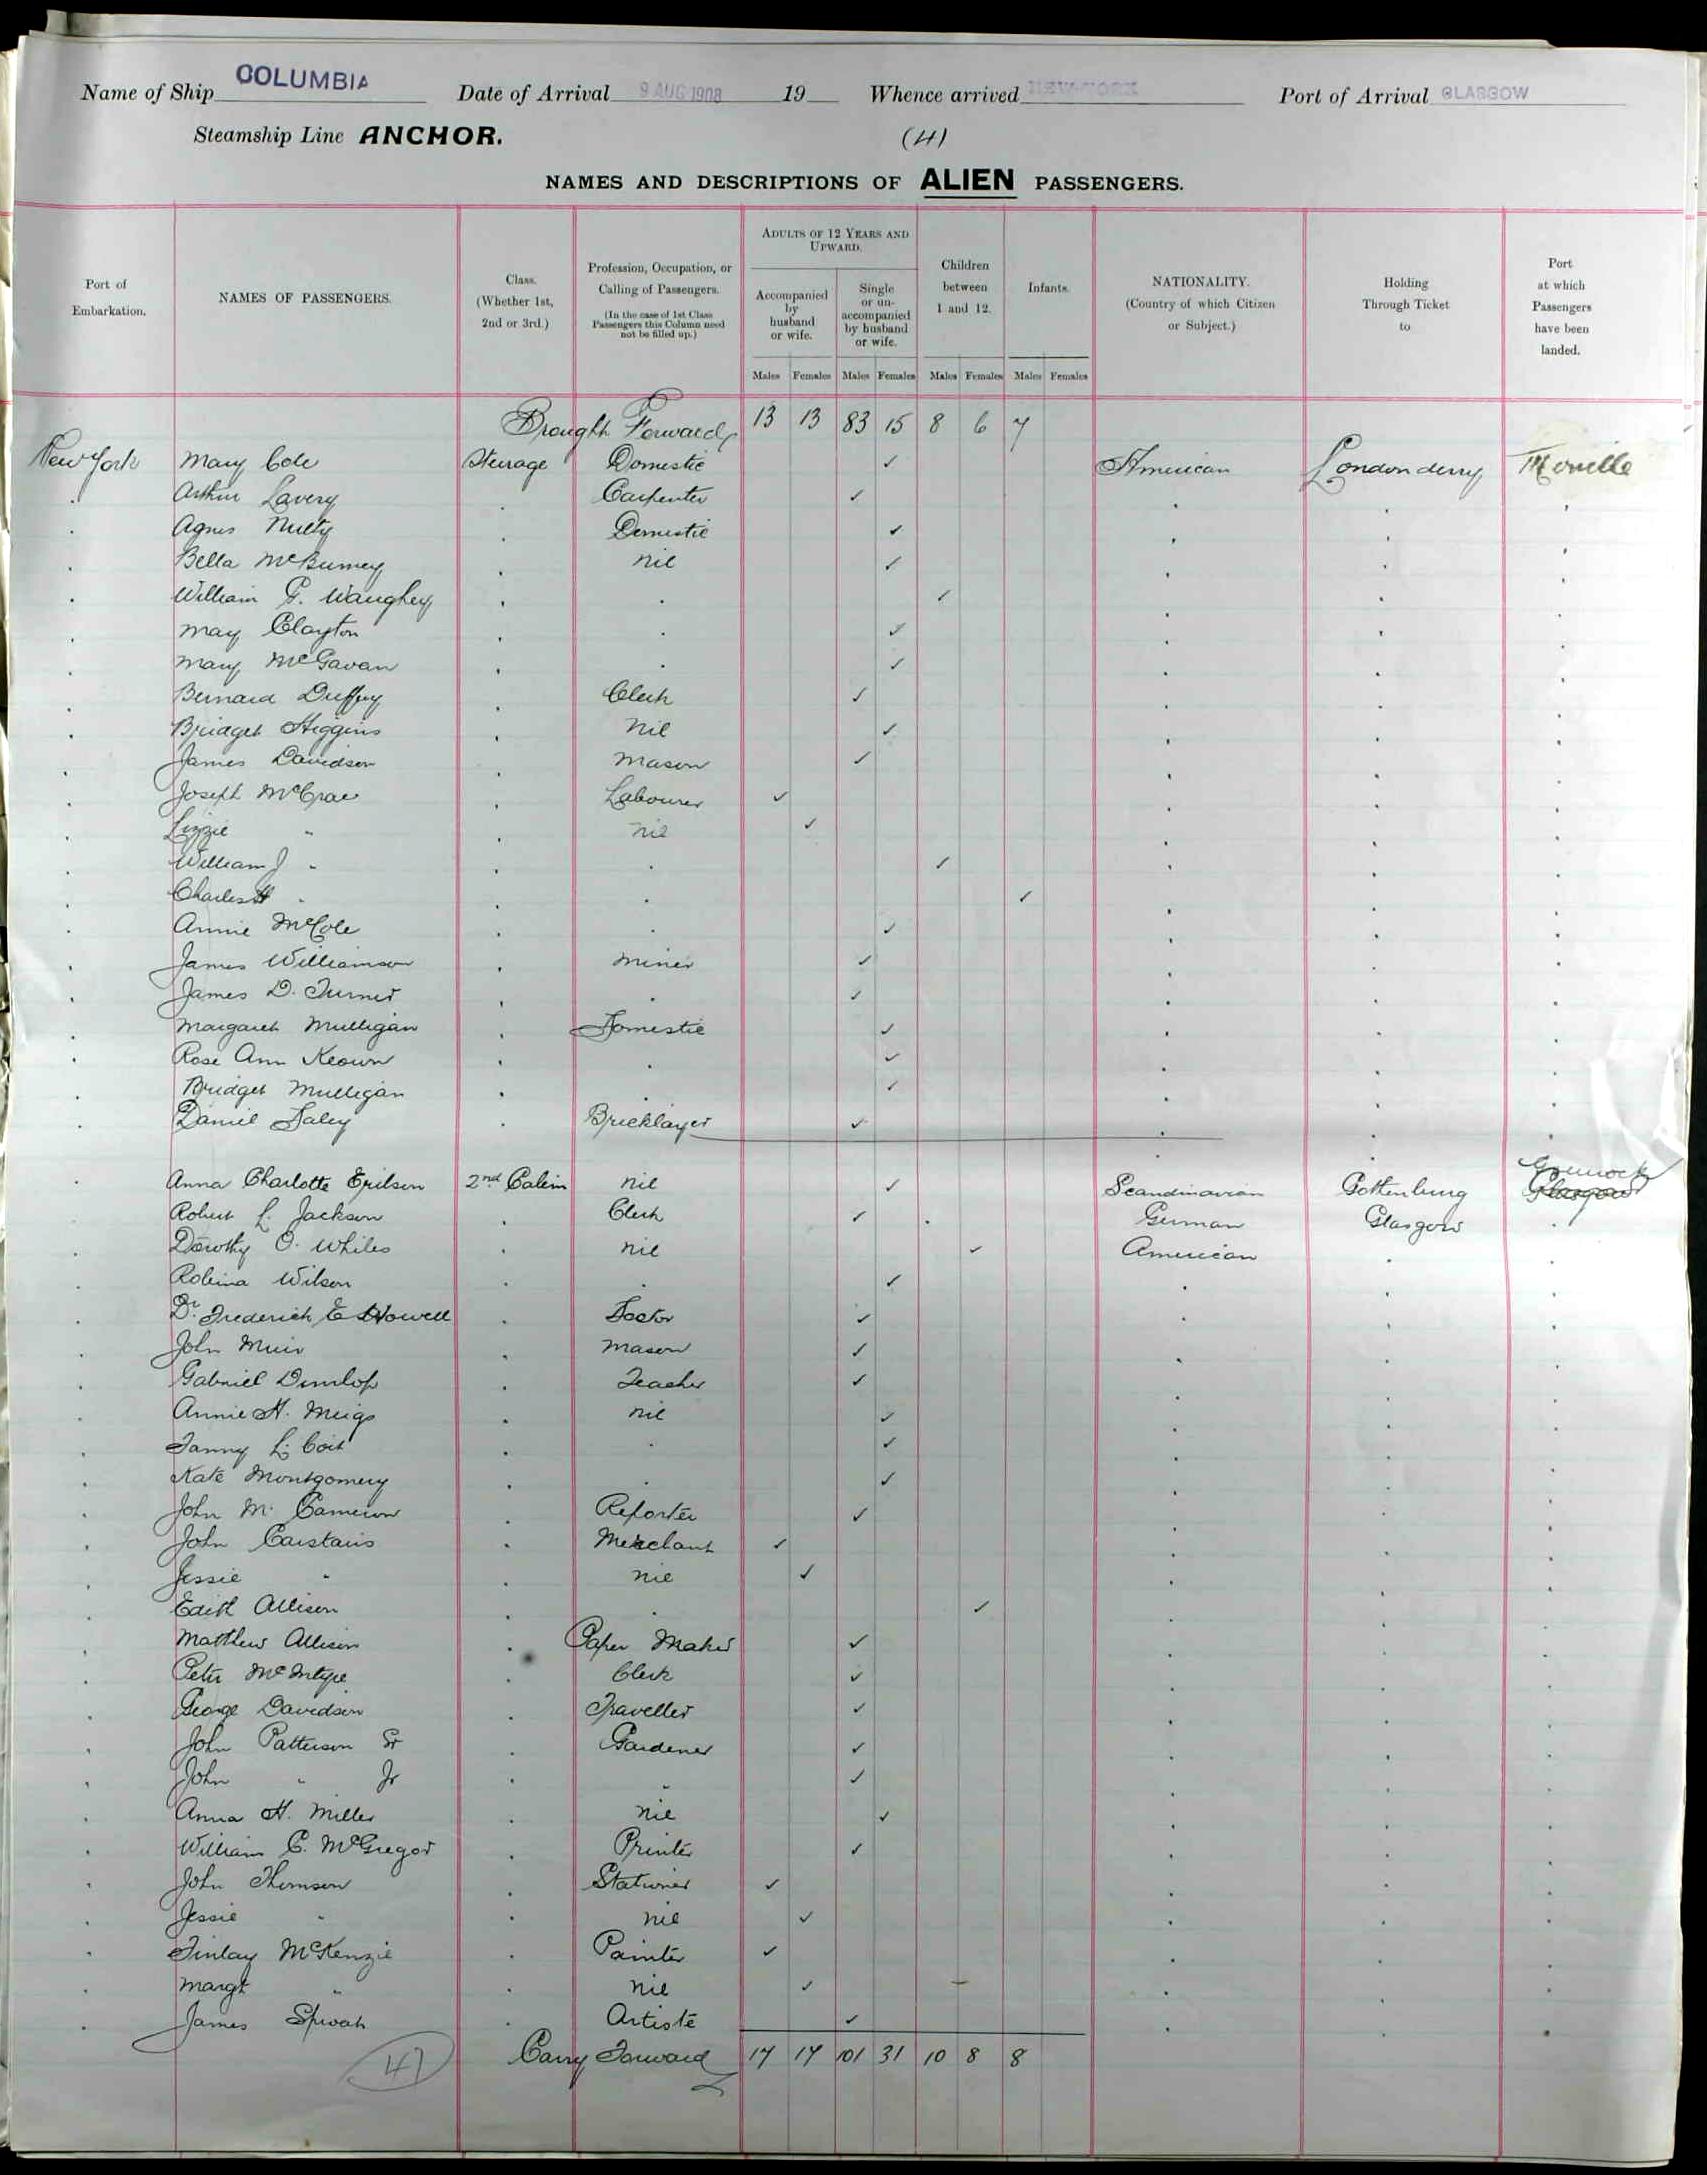 Name of Ship COLUMBIA Date of Arrival 9 AUG 1908 19 Whence arrived NEW-YORK Port of Arrival GLASGOW
Steamship Line ANCHOR. (4)
NAMES AND DESCRIPTIONS OF ALIEN PASSENGERS.
Port of Embarkation. NAMES OF PASSENGERS. Class. (Whether 1st, 2nd or 3rd.) Profession, Occupation, or Calling of Passengers. (In the case of 1st Class Passengers this Column need not be filled up.) ADULTS OF 12 YEARS AND UPWARD. Accompanied by husband or wife. Single or un-accompanied by husband or wife. Children between 1 and 12. Infants. NATIONALITY. (Country of which Citizen or Subject.) Holding Through Ticket to Port at which Passengers have been landed.
Males Females Males Females Males Females Males Females
Brought Forward 13 13 83 15 8 6 7
New York Mary Cole Steerage Domestic ✓ American Londonderry Moville
Arthur Lavery Carpenter ✓
Agnes Nulty Domestic ✓
Bella McBurney nil ✓
William G. Waughey ✓
May Clayton ✓
Mary McGavan ✓
Bernard Duffy Clerk ✓
Bridget Higgins Nil ✓
James Davidson Mason ✓
Joseph McCrae Labourer ✓
Lizzie " nil ✓
William J " ✓
Charles H " ✓
Annie McCole ✓
James Williamson Miner ✓
James D. Turner ✓
Margaret Mulligan Domestic ✓
Rose Ann Keown ✓
Bridget Mulligan ✓
Daniel Daley Bricklayer ✓
Anna Charlotte Erikson 2nd Cabin nil ✓ Scandinavian Gothenburg Greenock Glasgow
Robert L. Jackson Clerk ✓ German Glasgow
Dorothy O. Whiles nil ✓ American
Robina Wilson ✓
Dr. Frederick E Howell Doctor ✓
John Muir Mason ✓
Gabriel Dunlop Teacher ✓
Annie H. Meigs nil ✓
Fanny L. Coit ✓
Kate Montgomery ✓
John M. Cameron Reporter ✓
John Carstairs Merchant ✓
Jessie " nil ✓
Edith Allison ✓
Matthew Allison Paper Maker ✓
Peter McIntyre Clerk ✓
George Davidson Traveller ✓
John Patterson Sr Gardener ✓
John " Jr " ✓
Anna H. Miller nil ✓
William C. McGregor Printer ✓
John Thomson Stationer ✓
Jessie " nil ✓
Finlay McKenzie Painter ✓
Margt " nil ✓
James Spivak Artiste ✓
47 Carry Forward 17 17 101 31 10 8 8